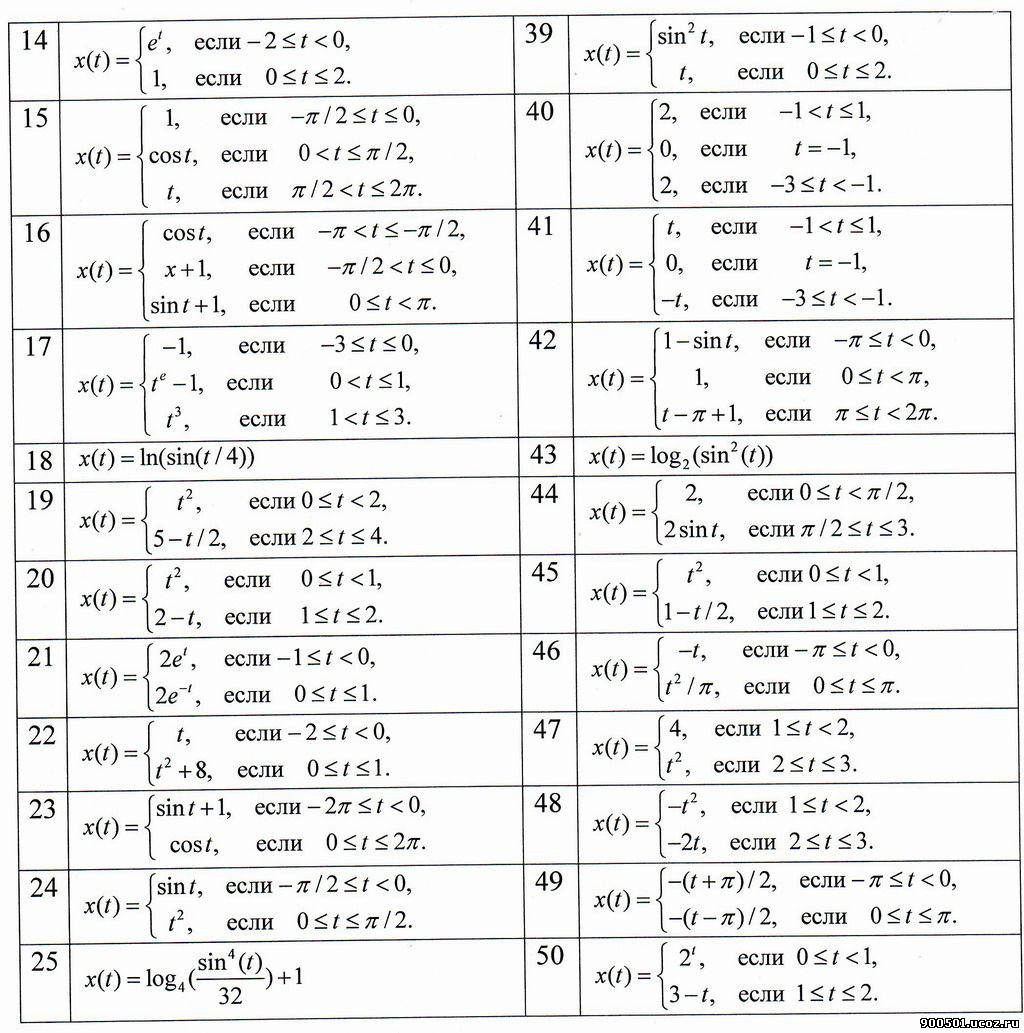 14 x(t) = { e^t, если −2 ≤ t < 0,
1, если 0 ≤ t ≤ 2.
39 x(t) = { sin² t, если −1 ≤ t < 0,
t, если 0 ≤ t ≤ 2.
15 x(t) = { 1, если −π / 2 ≤ t ≤ 0,
cos t, если 0 < t ≤ π / 2,
t, если π / 2 < t ≤ 2π.
40 x(t) = { 2, если −1 < t ≤ 1,
0, если t = −1,
2, если −3 ≤ t < −1.
16 x(t) = { cos t, если −π < t ≤ −π / 2,
x + 1, если −π / 2 < t ≤ 0,
sin t + 1, если 0 ≤ t < π.
41 x(t) = { t, если −1 < t ≤ 1,
0, если t = −1,
−t, если −3 ≤ t < −1.
17 x(t) = { −1, если −3 ≤ t ≤ 0,
t^e − 1, если 0 < t ≤ 1,
t³, если 1 < t ≤ 3.
42 x(t) = { 1 − sin t, если −π ≤ t < 0,
1, если 0 ≤ t < π,
t − π + 1, если π ≤ t < 2π.
18 x(t) = ln(sin(t / 4))
43 x(t) = log₂(sin²(t))
19 x(t) = { t², если 0 ≤ t < 2,
5 − t / 2, если 2 ≤ t ≤ 4.
44 x(t) = { 2, если 0 ≤ t < π / 2,
2 sin t, если π / 2 ≤ t ≤ 3.
20 x(t) = { t², если 0 ≤ t < 1,
2 − t, если 1 ≤ t ≤ 2.
45 x(t) = { t², если 0 ≤ t < 1,
1 − t / 2, если 1 ≤ t ≤ 2.
21 x(t) = { 2e^t, если −1 ≤ t < 0,
2e^−t, если 0 ≤ t ≤ 1.
46 x(t) = { −t, если −π ≤ t < 0,
t² / π, если 0 ≤ t ≤ π.
22 x(t) = { t, если −2 ≤ t < 0,
t² + 8, если 0 ≤ t ≤ 1.
47 x(t) = { 4, если 1 ≤ t < 2,
t², если 2 ≤ t ≤ 3.
23 x(t) = { sin t + 1, если −2π ≤ t < 0,
cos t, если 0 ≤ t ≤ 2π.
48 x(t) = { −t², если 1 ≤ t < 2,
−2t, если 2 ≤ t ≤ 3.
24 x(t) = { sin t, если −π / 2 ≤ t < 0,
t², если 0 ≤ t ≤ π / 2.
49 x(t) = { −(t + π) / 2, если −π ≤ t < 0,
−(t − π) / 2, если 0 ≤ t ≤ π.
25 x(t) = log₄(sin⁴(t) / 32) + 1
50 x(t) = { 2^t, если 0 ≤ t < 1,
3 − t, если 1 ≤ t ≤ 2.
900501.ucoz.ru